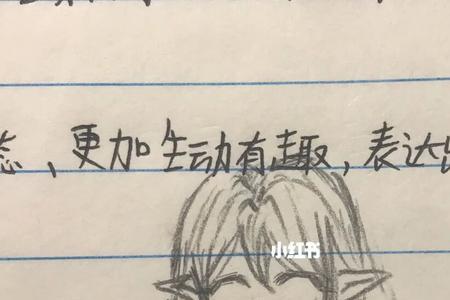 态，更加生动有趣，表达
小红书